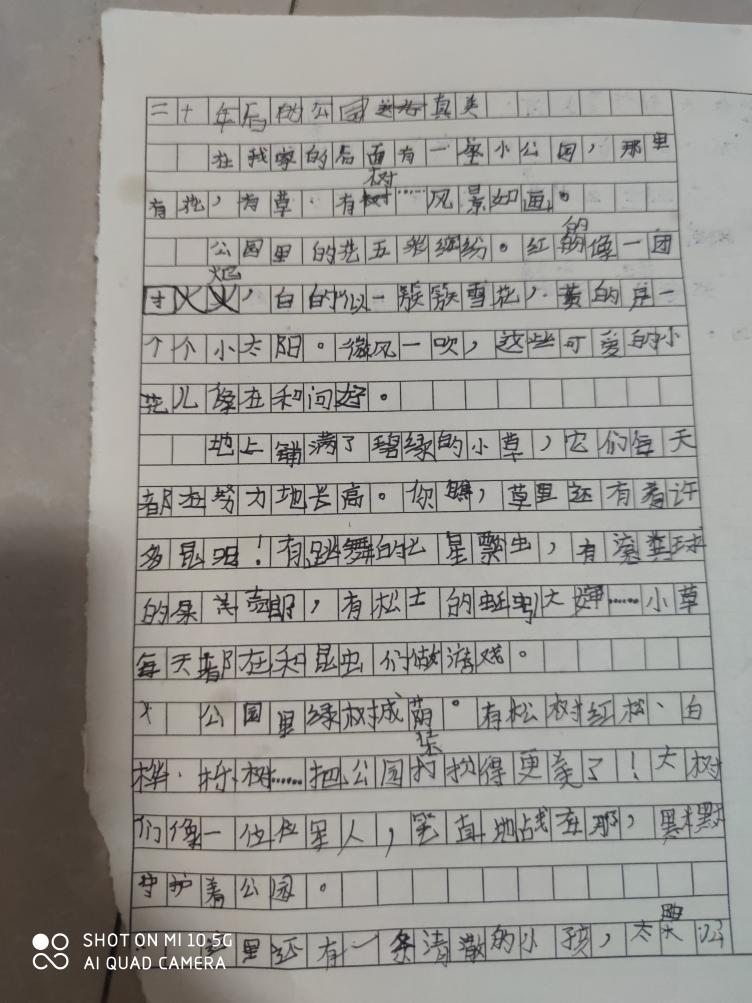 二十年后的公园真美
在我家的后面有一座小公园，那里
有花，有草．有树……风景如画。
公园里的花五彩缤纷。红的像一团
火焰，白的似一簇簇雪花，黄的是一
个个小太阳。微风一吹，这些可爱的小
花儿像在和问好。
地上铺满了碧绿的小草，它们每天
都在努力地长高。你瞧，草里还有着许
多昆虫！有跳舞的七星瓢虫，有滚粪球
的屎壳郎，有松土的蚯蚓大婶……小草
每天都在和昆虫们做游戏。
公园里绿树成荫。有松树红松、白
桦．柞树……把公园打扮得更美了！大树
们像一位位军人，笔直地战在那，默默
守护着公园。
里还有一条清澈的小
SHOT ON MI 10 5G
AI QUAD CAMERA